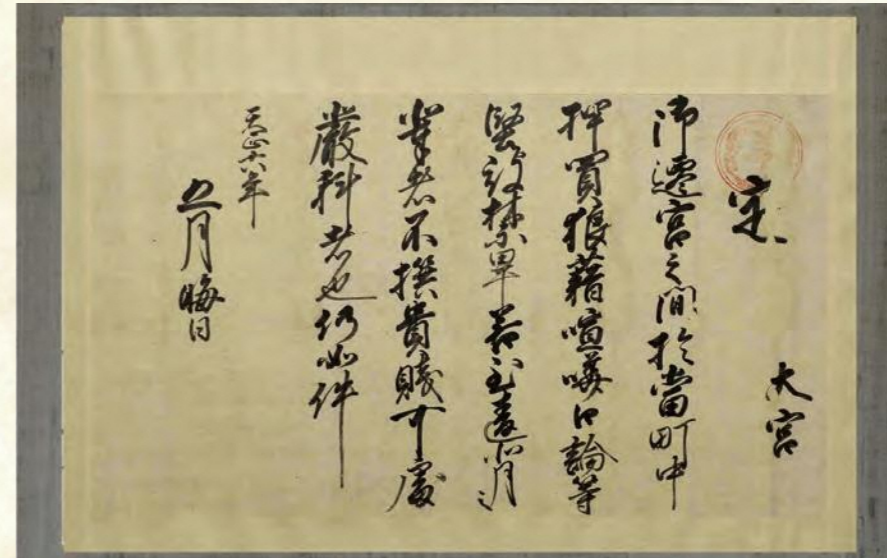 定　大宮
御遷宮之間於當町中
押買狼藉喧嘩口論等
堅被禁畢若至違背之
輩者不撰貴賤可處
嚴科者也仍如件
天正六年
五月晦日